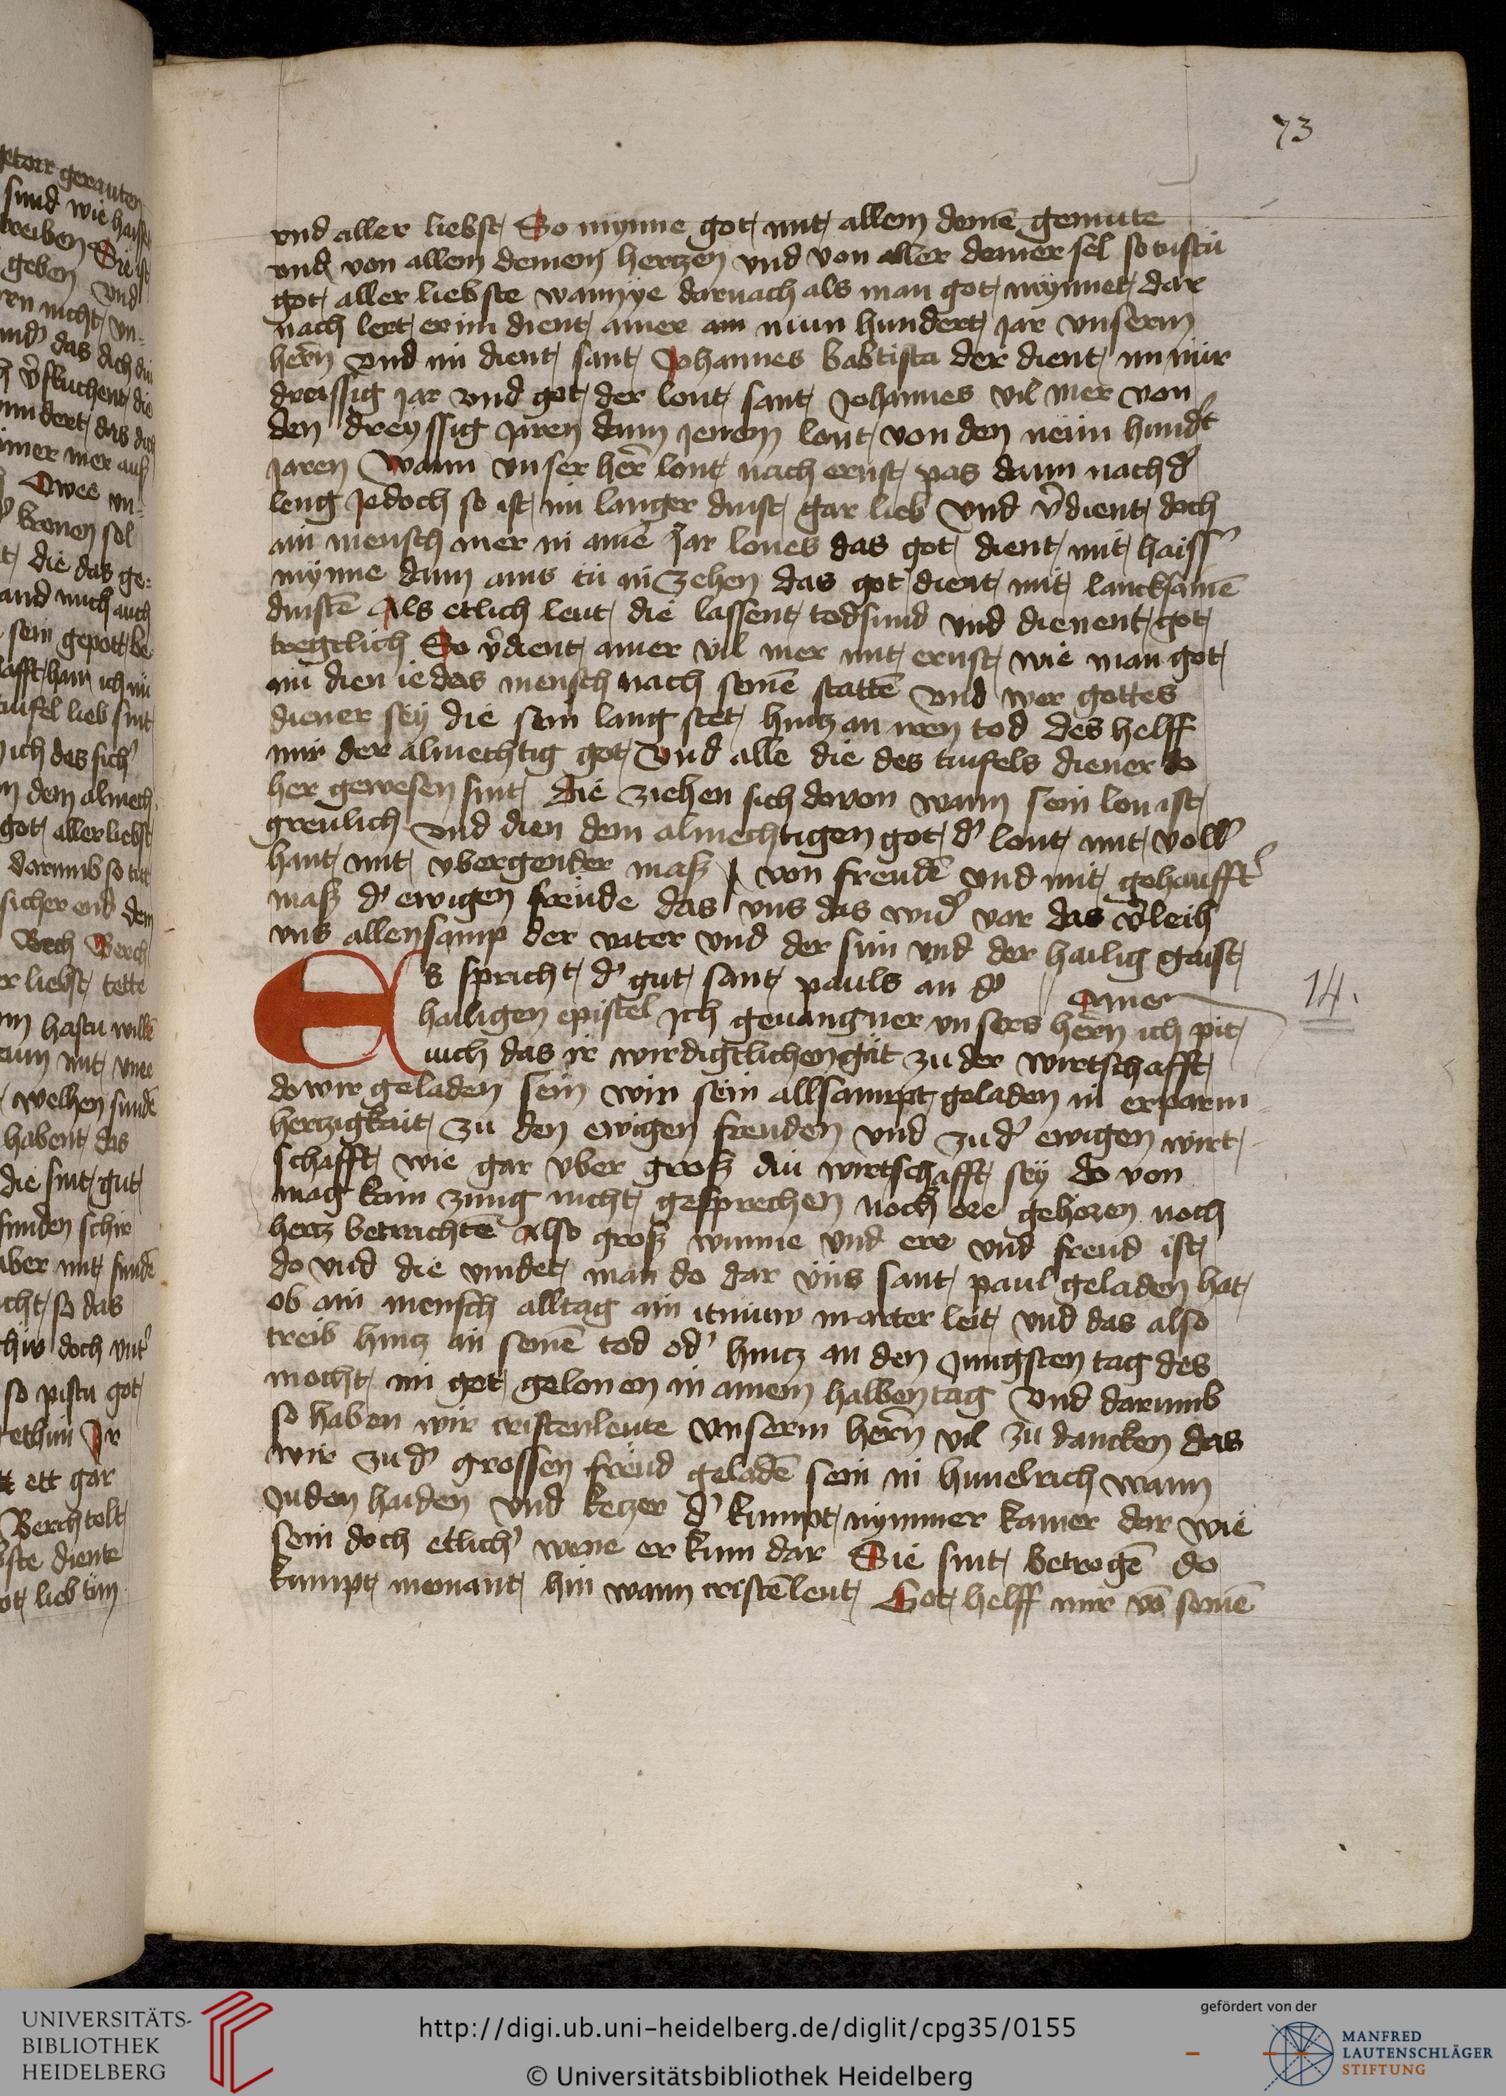 73
vnd aller liebst So mynne got mit allem deinē gemute
vnd von allem deinem hertzen vnd von aller deiner sel so tustu
got aller liebste wannye darnach als man got mynnet dar
nach lert er im dient ainer am niun hundert jar vnserm
hern̄ vnd im dient sant Johannes babtista der dient im nur
dreissig jar vnd got der lont sant Johannes vil mer von
den dreyssig jaren dann jenem lont von den neun hundt̓
jaren Wann vnser her̄ lont nach ernst pas dann nach d̓
leng Jedoch so ist im langer dinst gar lieb vnd v̓dient doch
ain mensch mer in ainē Jar lones das got dient mit haiss̓
mynne dann ains tü in zehen das got dient mit lancksamē
dinstē Als etlich leut die lassent todsund vnd dienent got
tregtlich So v̓dient ainer vil mer mit ernst wie man got
im dien iedes mensch nach seinē stattē vnd wer gottes
diener sey die sein lang stet hintz an iren tod des helff
mir der almechtig got Vnd alle die des tiufels diener do
her gewesen sint die ziehen sich dovon wann sein lon ist
greulich vnd dien dem almechtigen got d̓ lont mit voll̓
hant mit vbergender maß von freudē vnd mit gehaufft̓
maß d̓ ewigen freude das vns das wid̓ var das v̓leih
vns allensamp der vater vnd der sun vnd der hailig gaist
Amer
Es spricht d̓ gut sant pauls an d̓
14.
hailigen epistel Ich geuangner vnsers hern̄ ich pit
iuch das ir wirdigtlichen gät zu der wirtschafft
do wir geladen sein wir sein allsampt geladen in erparm
hertzigkait zu den ewigen freuden vnd zu d̓ ewigen wirt
schafft wie gar vber groß diu wirtschafft sey do von
mag kain zung nicht gesprechen noch ore gehoren noch
hertz betrachtē Also groß wunne vnd ere vnd freud ist
do vnd die vindet man do dar vns sant paul geladen hat
ob ain mensch alltag ain itniuw marter leit vnd das also
treib hintz an seinē tod od̓ hintz an den Jungsten tag des
mocht im got gelonen in ainem halben tag Vnd darumb
so haben wir cristenleute vnserm hern̄ vil zu dancken das
wir zu d̓ grossen freud geladē sein in himelrich wann
Juden haiden vnd ketzer d̓ kumpt nymmer kainer dar wie
sein doch etlich̓ wene er kum dar Sie sint betrogē do
kumpt niemant hin wann cristēleut Got helff mir vō seinē
UNIVERSITÄTS-
BIBLIOTHEK
HEIDELBERG
http://digi.ub.uni-heidelberg.de/diglit/cpg35/0155
© Universitätsbibliothek Heidelberg
gefördert von der
MANFRED
LAUTENSCHLÄGER
STIFTUNG